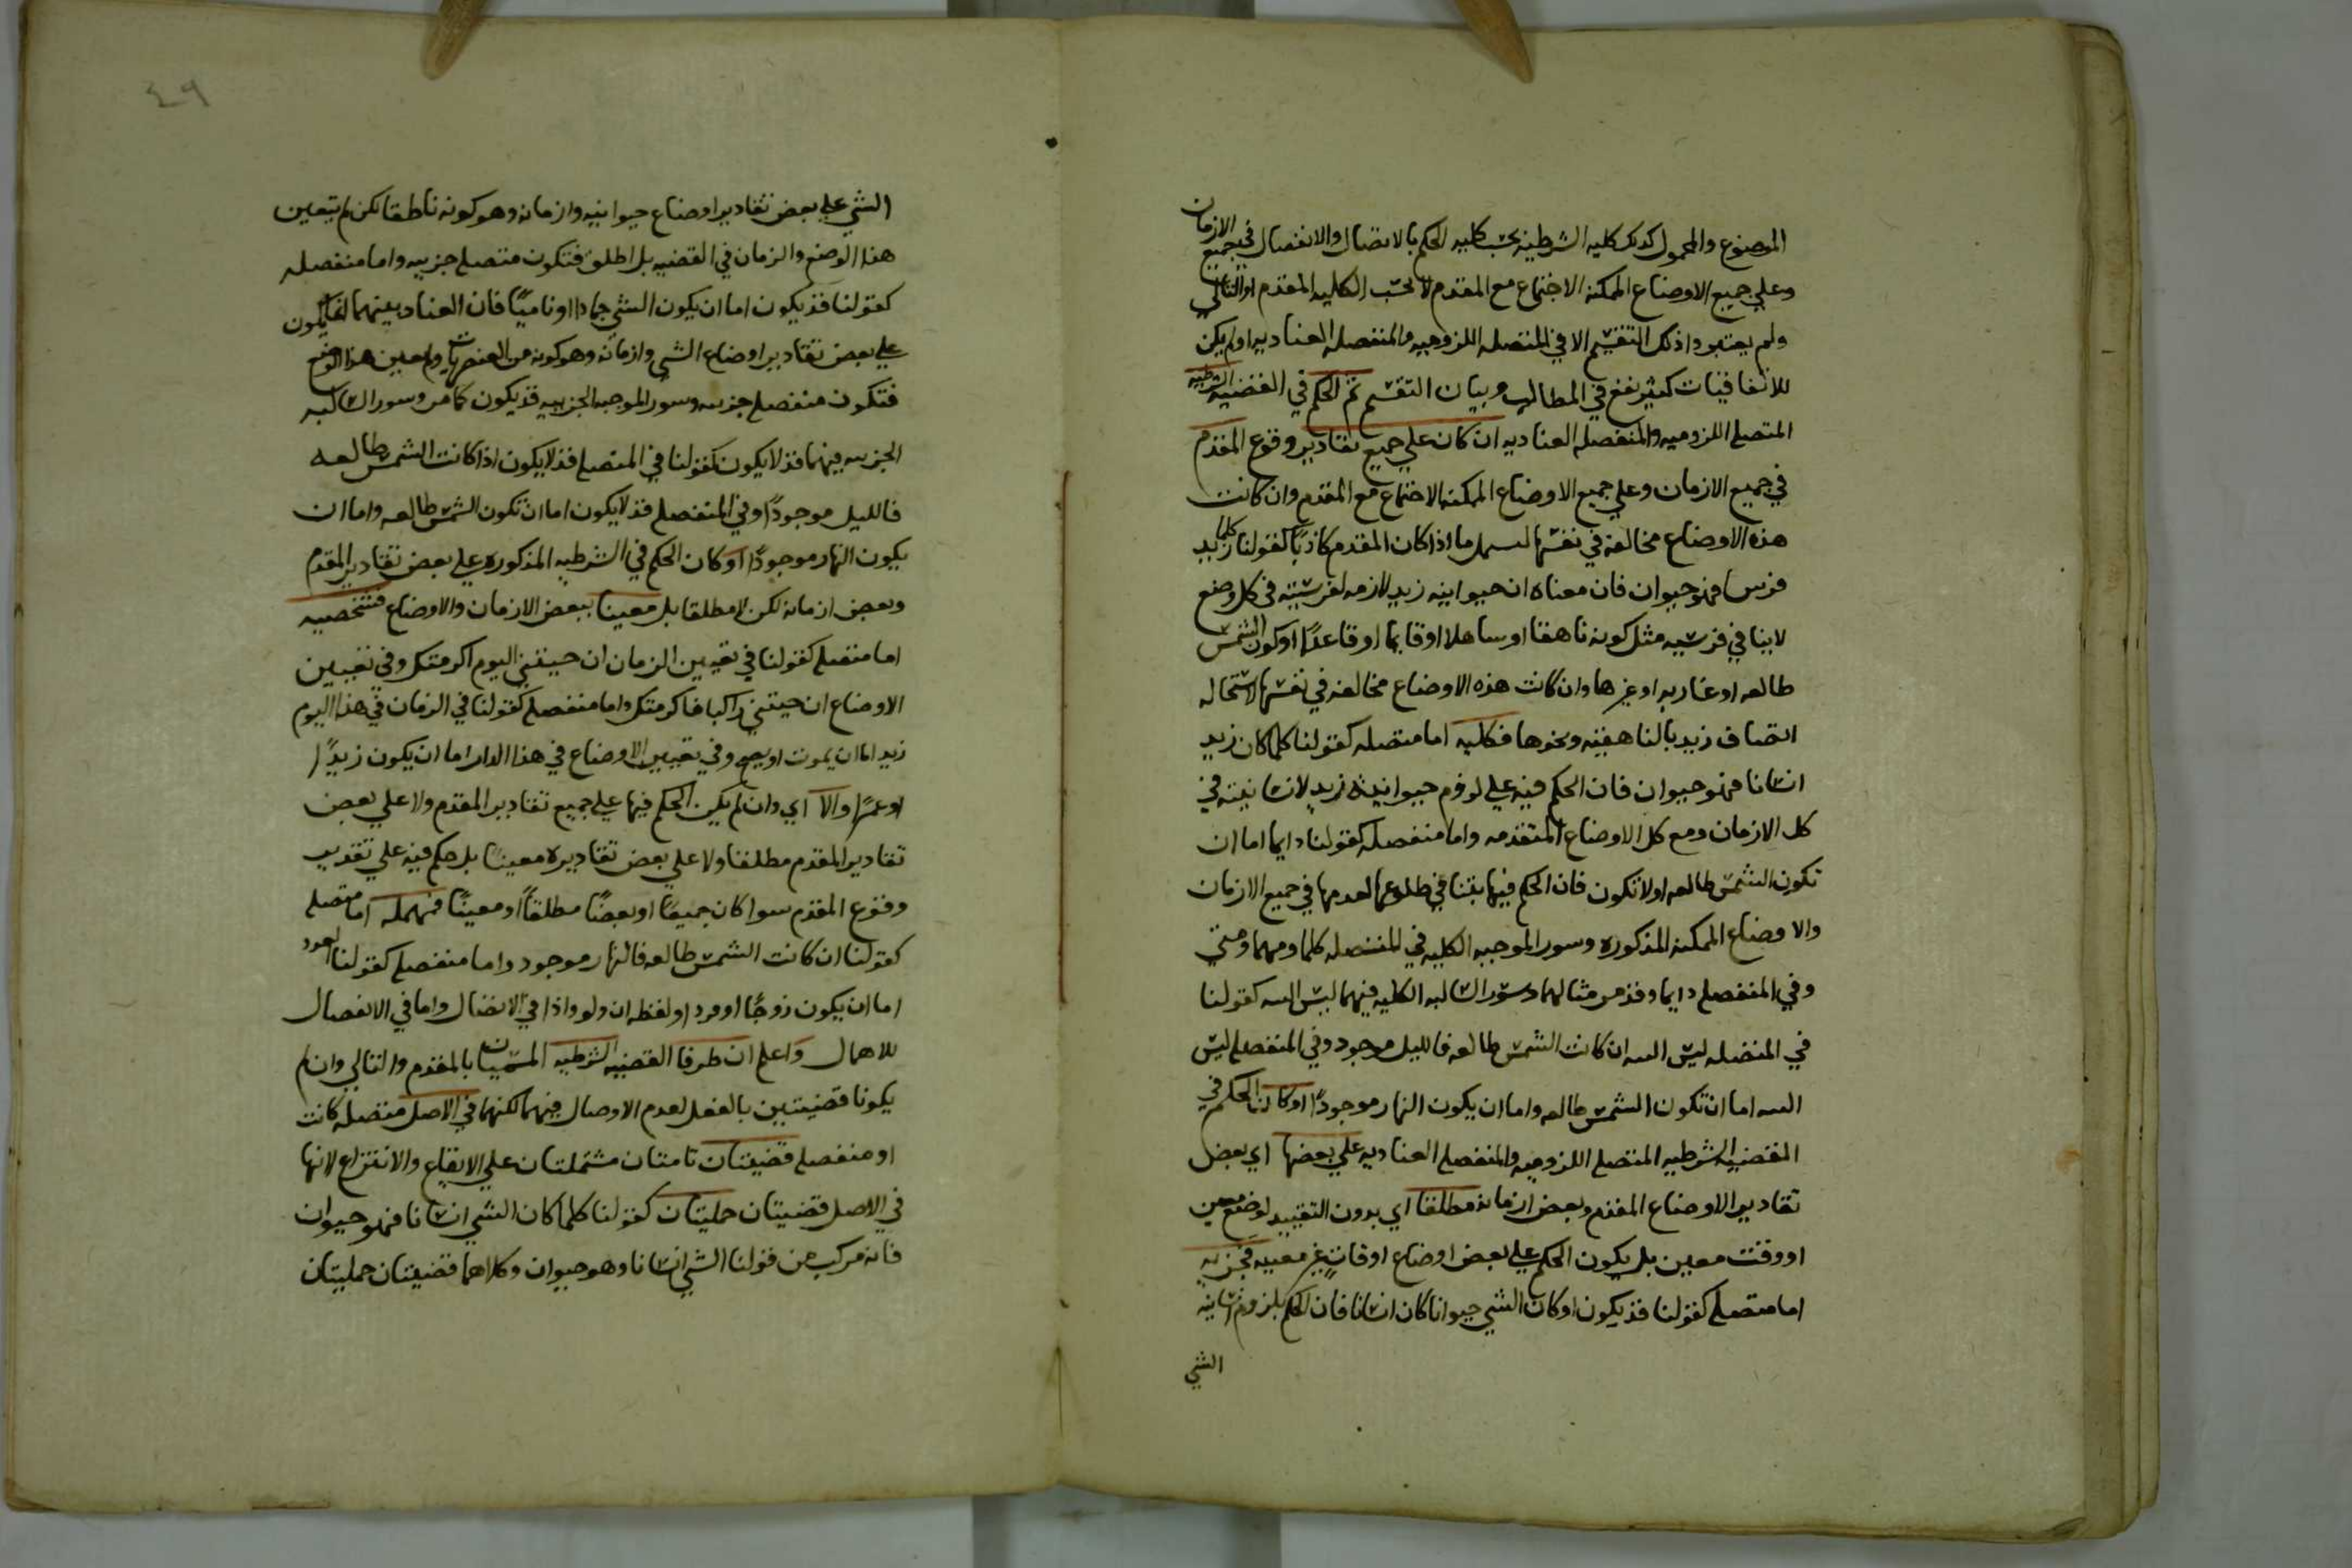 الموضوع والمحمول كذلك كليه الشرطيه بحسب كليه الحكم بالاتصال والانفصال في جميع الازمان
وعلي جميع الاوضاع الممكنه الاجتماع مع المقدم لا بحسب الكليه المقدم او التالي
ولم يعتبروا ذلك التقسيم الا في المتصله اللزوميه والمنفصله العناديه اذ لم يكن
للاتفاقيات كثير نفع في المطالب وبيان التقسيم ثم الحكم في القضيه الشرطيه
المتصله اللزوميه والمنفصله العناديه ان كان علي جميع تقادير وقوع المقدم
في جميع الازمان وعلي جميع الاوضاع الممكنه الاجتماع مع المقدم وان كانت
هذه الاوضاع مخالفه في نفسها ليشمل ما اذا كان المقدم كاذبا كقولنا كلما زيد
فرس فهو حيوان فان معناه ان حيوانيه زيد لازمه لفرسيته في كل وضع
لاينافي فرسيه مثل كونه ناهقا او ساهلا او قايما او قاعدًا او كون الشمس
طالعه او غاربه او غيرها وان كانت هذه الاوضاع مخالفه في نفسها لاستحاله
اتصاف زيد بالناهقيه ونحوها فكليه اما متصله كقولنا كلما كان زيد
انسانا فهو حيوان فان الحكم فيه علي لزوم حيوانيته زيد لانسانيته في
كل الازمان ومع كل الاوضاع المتقدمه واما منفصله كقولنا دايما اما ان
تكون الشمس طالعه او لا تكون فان الحكم فيها بتنافي طلوعها لعدمها في جميع الازمان
والاوضاع الممكنه المذكوره وسور الموجبه الكليه في المتصله كلما ومهما ومتي
وفي المنفصله دايما وقد مر مثالهما وسور السالبه الكليه فيهما ليس البته كقولنا
في المتصله ليس البته ان كانت الشمس طالعه فالليل موجود وفي المنفصله ليس
البته اما ان تكون الشمس طالعه واما ان يكون النهار موجودًا او كان الحكم في
القضيه الشرطيه المتصله اللزوميه والمنفصله العناديه علي بعضها اي بعض
تقادير الاوضاع المقدم وبعض ازمانه مطلقا اي بدون التقييد لوضع معين
او وقت معين بل يكون الحكم علي بعض اوضاع اوقات غير معينه فجزيه
اما متصله كقولنا قد يكون اذا كان الشي حيوانا كان انسانا فان الحكم بلزوم انسانيه
الشي
٤٩
الشي علي بعض تقادير اوضاع حيوانيه وازمانه وهو كونه ناطقا لكن لم يتعين
هذا الوضع والزمان في القضيه بل اطلق فتكون متصله جزييه واما منفصله
كقولنا قد يكون اما ان يكون الشي جمادا او ناميًا فان العناد بينهما انما يكون
علي بعض تقادير اوضاع الشي وازمانه وهو كونه من العنصريات ولم يعين هذا الوضع
فتكون منفصله جزييه وسور الموجبه الجزييه قد يكون كما مر وسور السالبه
الجزييه فيهما قد لا يكون كقولنا في المتصله قد لا يكون اذا كانت الشمس طالعه
فالليل موجودًا وفي المنفصله قد لا يكون اما ان تكون الشمس طالعه واما ان
يكون النهار موجودًا او كان الحكم في الشرطيه المذكوره علي بعض تقادير المقدم
وبعض ازمانه لكن لا مطلقا بل معينا ببعض الازمان والاوضاع فشخصيه
اما متصله كقولنا في تعيين الزمان ان جيتني اليوم اكرمتك وفي تعيين
الاوضاع ان جيتني راكبا فاكرمتك واما منفصله كقولنا في الزمان في هذا اليوم
زيد اما ان يموت او يصح وفي تعيين الاوضاع في هذا الدار اما ان يكون زيدًا
او عمرًا والا اي وان لم يكن الحكم فيها علي جميع تقادير المقدم ولا علي بعض
تقادير المقدم مطلقا ولا علي بعض تقاديره معينا بل حكم فيه علي تقدير
وقوع المقدم سوا كان جميعًا او بعضًا مطلقًا او معينًا فمهمله اما متصله
كقولنا ان كانت الشمس طالعه فالنهار موجود واما منفصله كقولنا العدد
اما ان يكون زوجًا او فردا ولفظه ان ولو واذا في الاتصال واما في الانفصال
للاهمال واعلم ان طرفا القضيه الشرطيه المسميان بالمقدم والتالي وان لم
يكونا قضيتين بالفعل لعدم الاوصال فيهما لكنهما في الاصل متصله كانت
او منفصله قضيتان تامتان مشتملتان علي الايقاع والانتزاع لانها
في الاصل قضيتان حمليتان كقولنا كلما كان الشي انسانا فهو حيوان
فانه مركب من قولنا الشي انسانا وهو حيوان وكلاهما قضيتان حمليتان